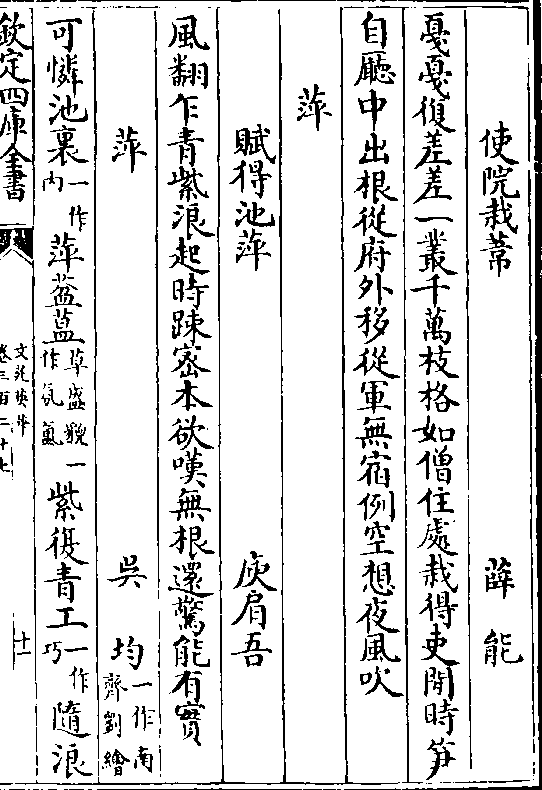 使院栽葦 薛能
戛戛復差差一叢千萬枝格如僧住處栽得吏閒時笋
自廳中出根從府外移從軍無宿例空想夜風吹
萍
賦得池萍 庾肩吾
風翻乍青紫浪起時疎密本欲嘆無根還驚能有實
萍 吳均一作南齊劉繪
可憐池裏一作内萍葢蒀草盛貌一作氛氲紫復青工一作巧隨浪
欽定四庫全書
文苑英華
卷三百二十七
十一